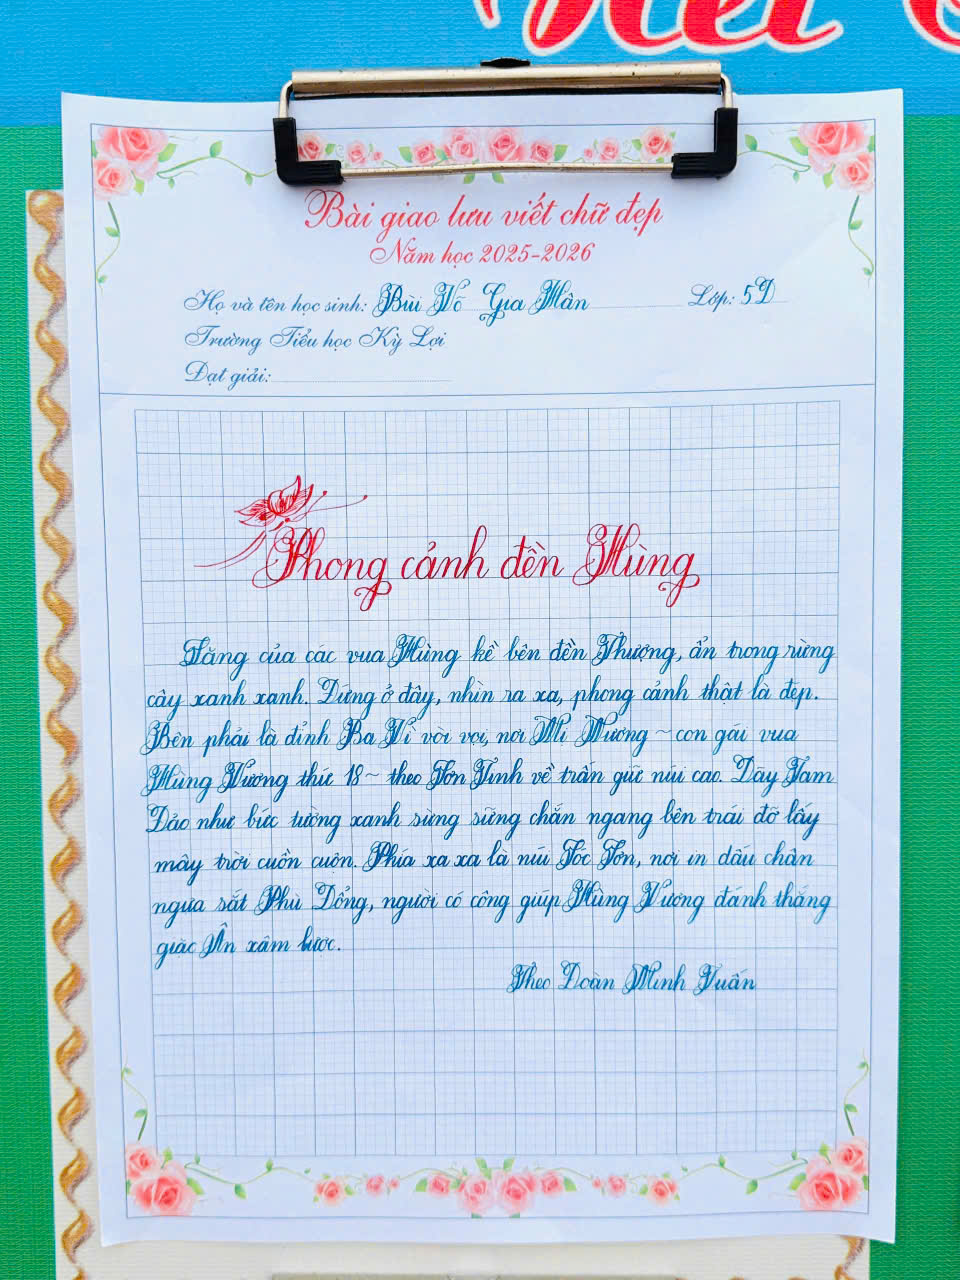 Bài giao lưu viết chữ đẹp
Năm học 2025-2026
Họ và tên học sinh: Bùi Võ Gia Hân Lớp: 5D
Trường Tiểu học Kỳ Lợi
Đạt giải:
Phong cảnh đền Hùng
Lăng của các vua Hùng kề bên đền Thượng, ẩn trong rừng
cây xanh xanh. Đứng ở đây, nhìn ra xa, phong cảnh thật là đẹp.
Bên phải là đỉnh Ba Vì vòi vọi, nơi Mị Nương - con gái vua
Hùng Vương thứ 18 - theo Sơn Tinh về trấn giữ núi cao. Dãy Tam
Đảo như bức tường xanh sừng sững chắn ngang bên trái đỡ lấy
mây trời cuồn cuộn. Phía xa xa là núi Sóc Sơn, nơi in dấu chân
ngựa sắt Phù Đổng, người có công giúp Hùng Vương đánh thắng
giặc Ân xâm lược.
Theo Đoàn Minh Tuấn